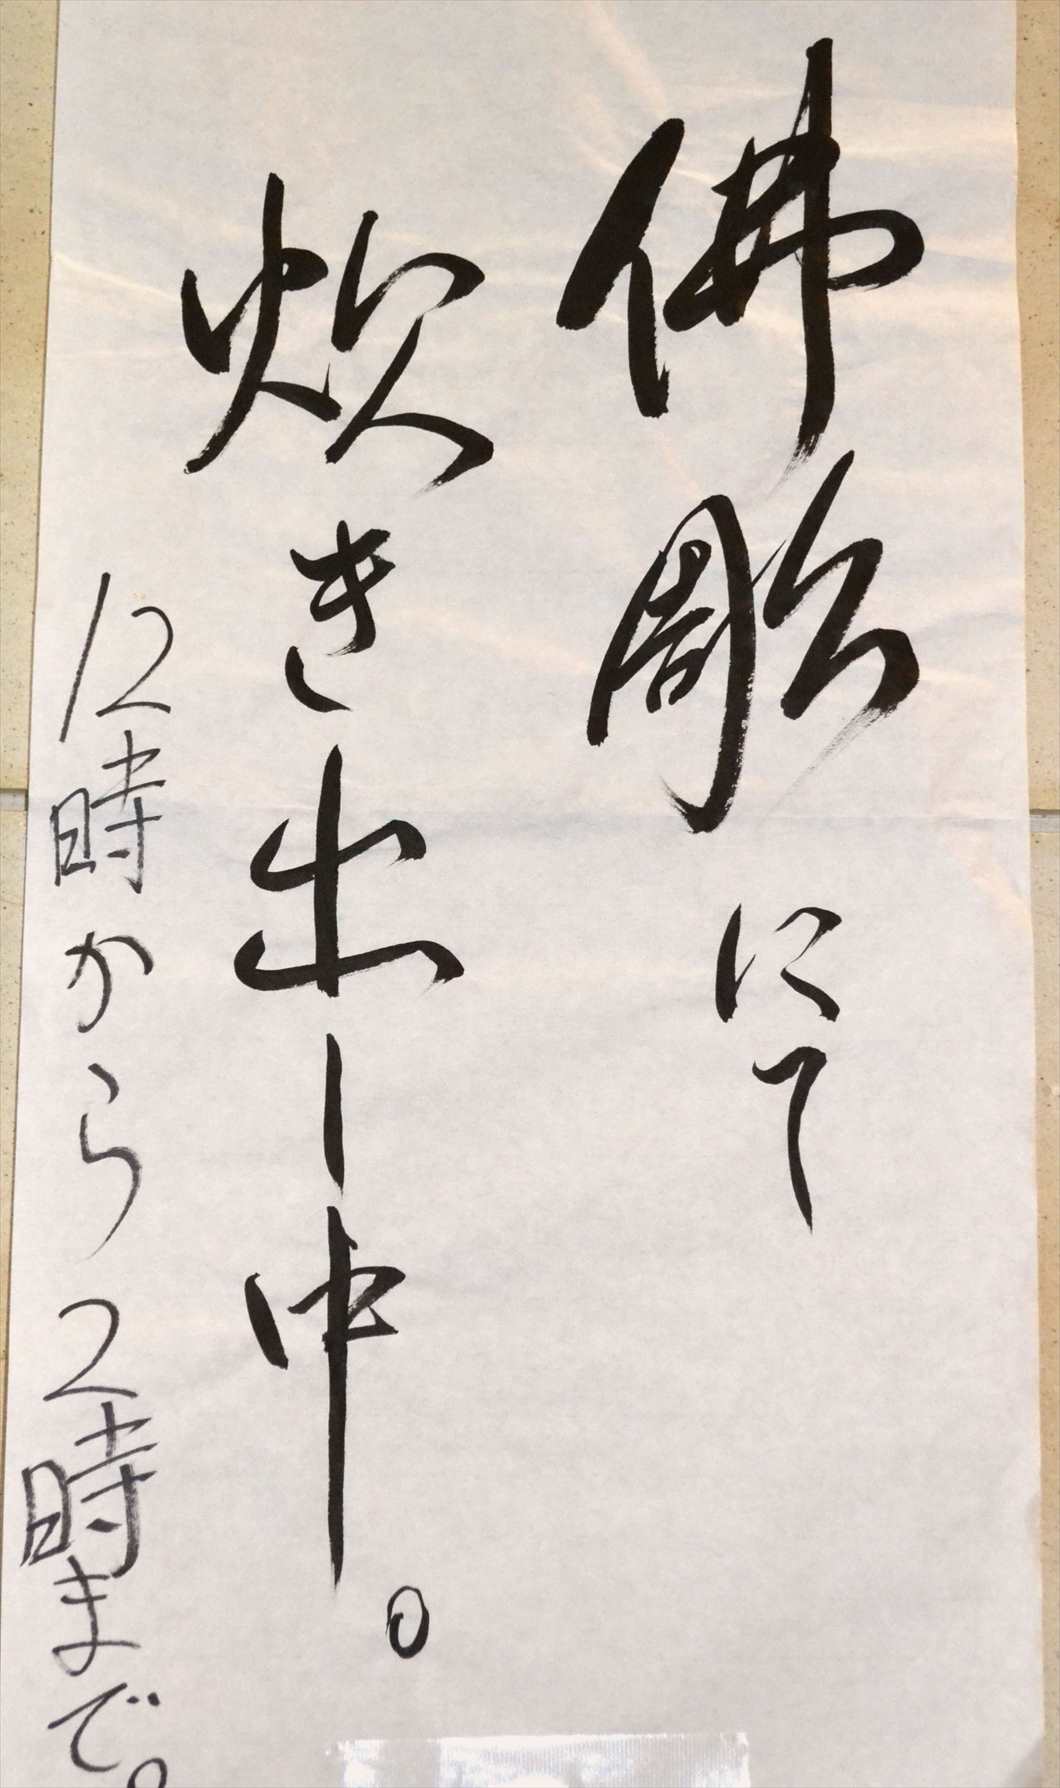 佛彫にて
炊き出し中。
12時から2時まで。